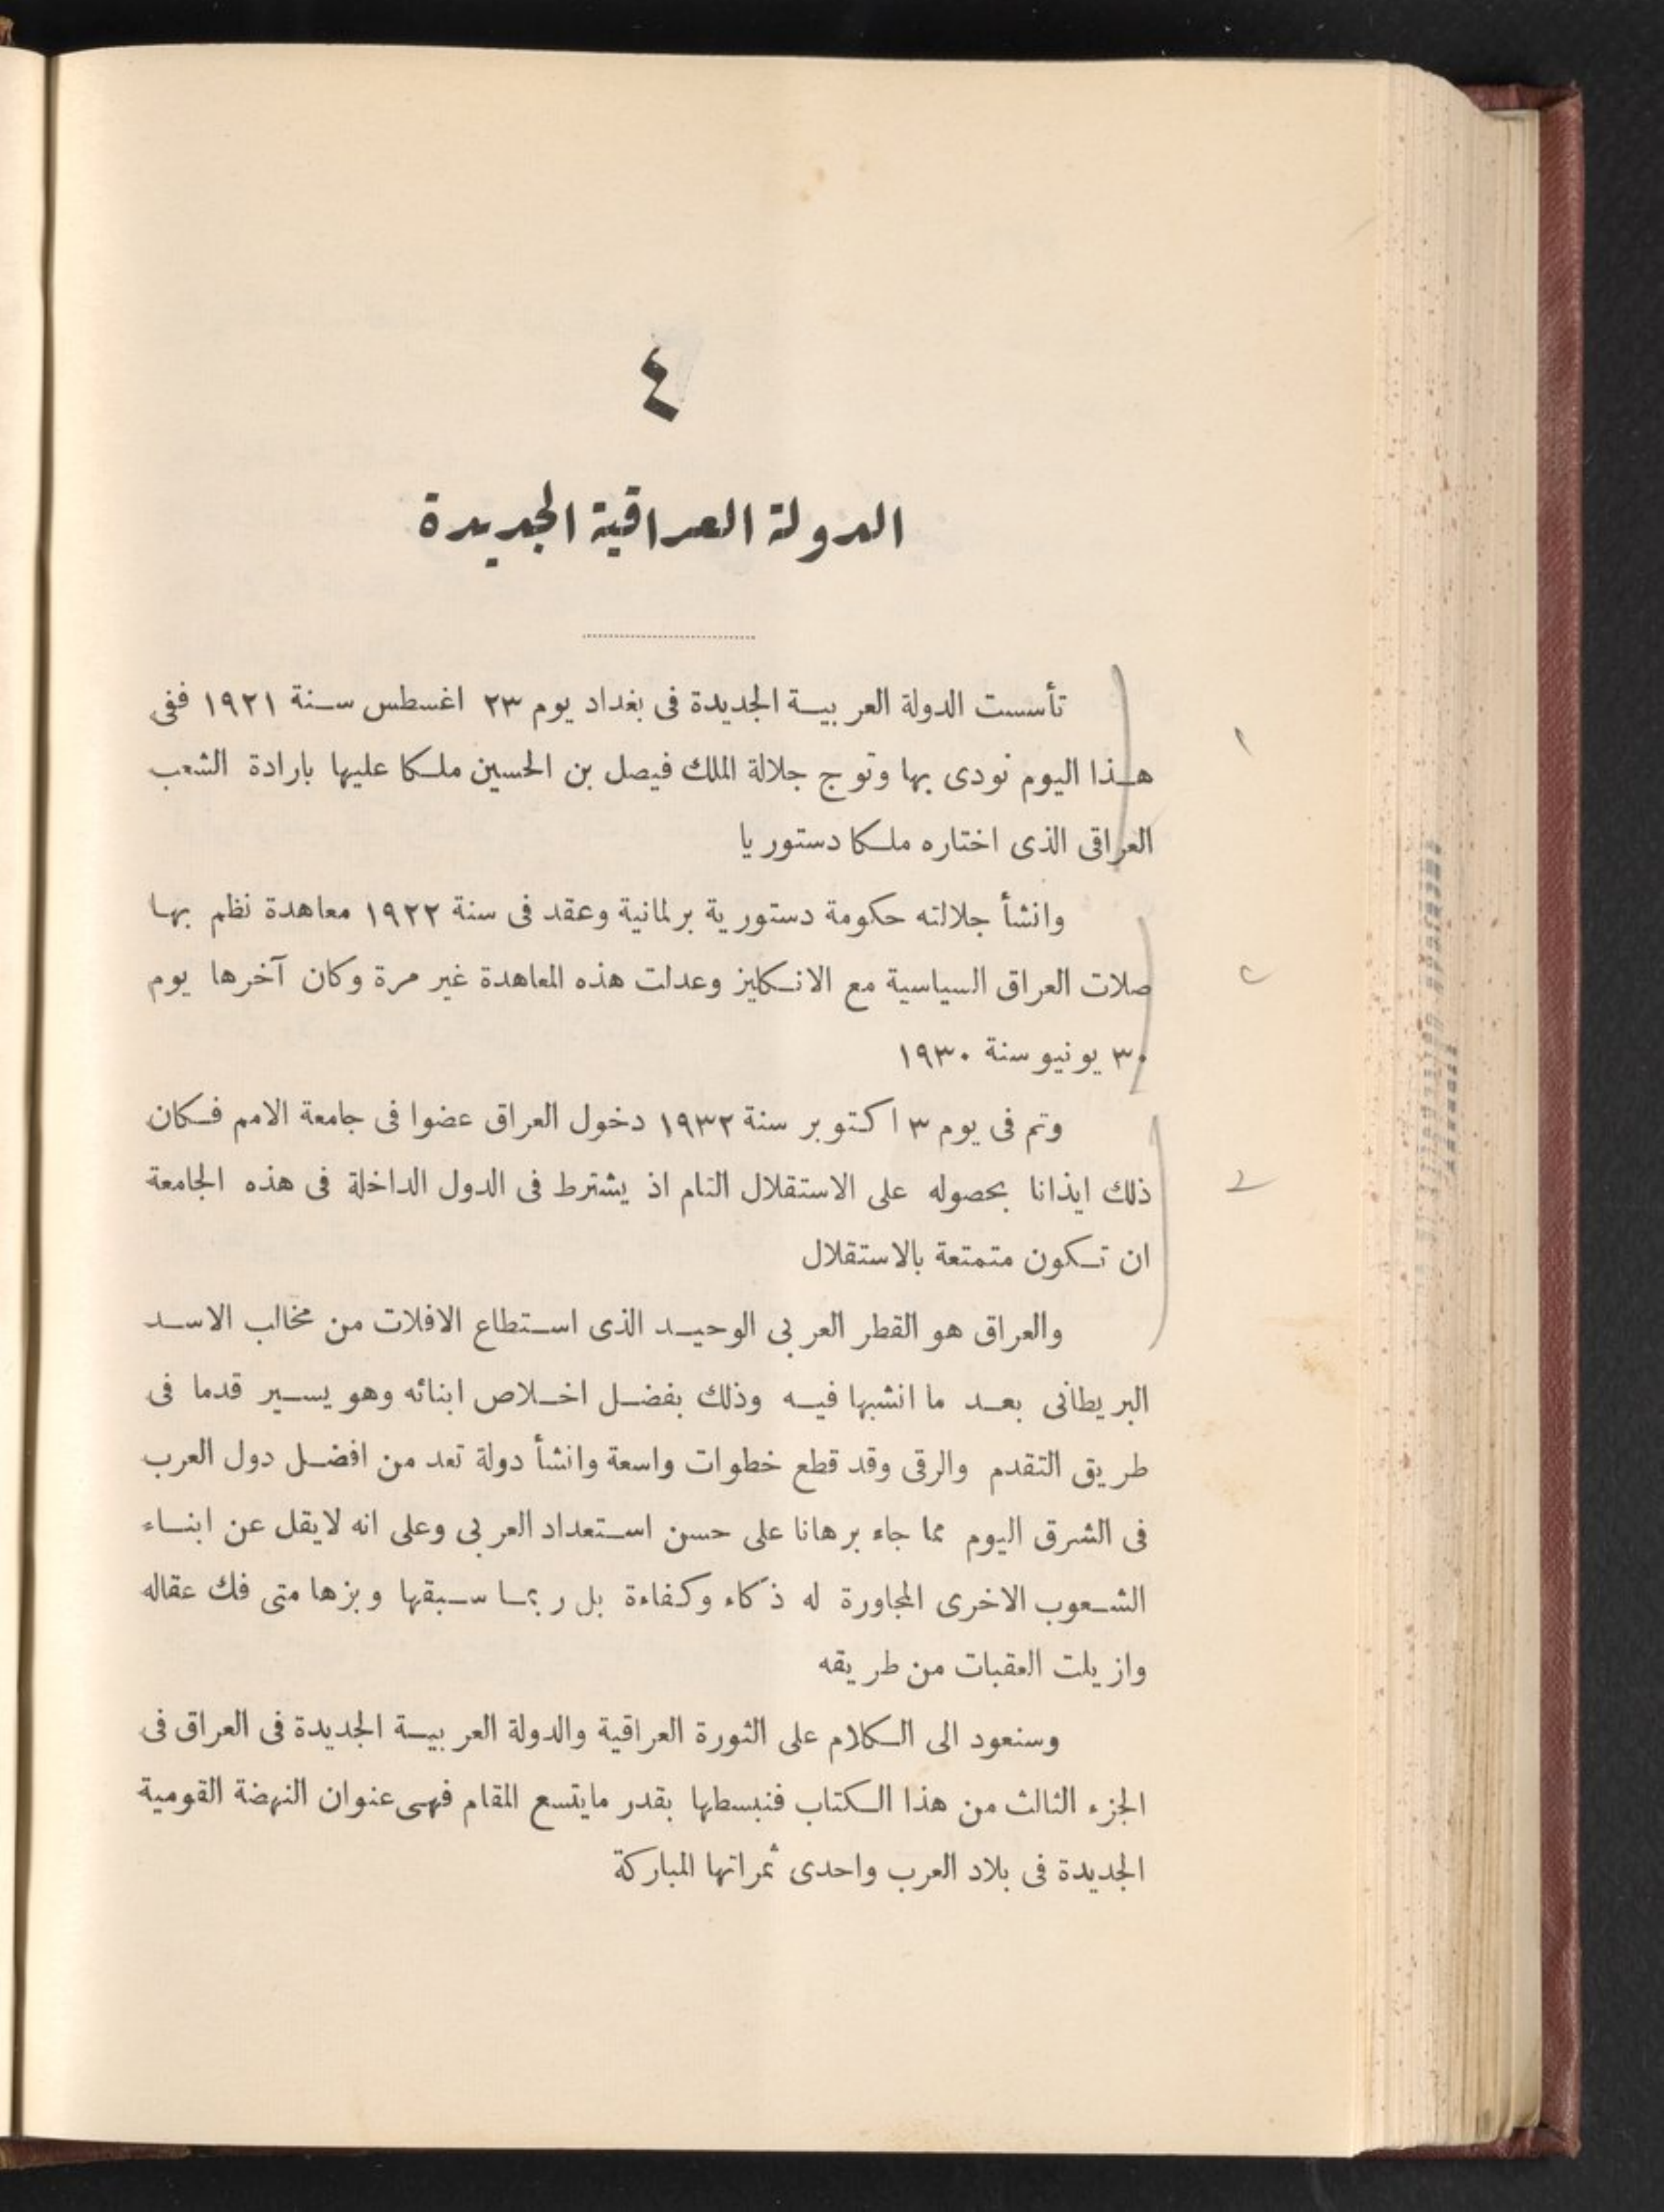 ٤
الدولة العراقية الجديدة
تأسست الدولة العربية الجديدة فى بغداد يوم ٢٣ اغسطس سنة ١٩٢١ ففى
هذا اليوم نودى بها وتوج جلالة الملك فيصل بن الحسين ملكا عليها بارادة الشعب
العراقى الذى اختاره ملكا دستوريا
وانشأ جلالته حكومة دستورية برلمانية وعقد فى سنة ١٩٢٢ معاهدة نظم بها
صلات العراق السياسية مع الانكليز وعدلت هذه المعاهدة غير مرة وكان آخرها يوم
٣٠ يونيو سنة ١٩٣٠
وتم فى يوم ٣ اكتوبر سنة ١٩٣٢ دخول العراق عضوا فى جامعة الامم فكان
ذلك ايذانا بحصوله على الاستقلال التام اذ يشترط فى الدول الداخلة فى هذه الجامعة
ان تكون متمتعة بالاستقلال
والعراق هو القطر العربى الوحيد الذى استطاع الافلات من مخالب الاسد
البريطانى بعد ما انشبها فيه وذلك بفضل اخلاص ابنائه وهو يسير قدما فى
طريق التقدم والرقى وقد قطع خطوات واسعة وانشأ دولة تعد من افضل دول العرب
فى الشرق اليوم مما جاء برهانا على حسن استعداد العربى وعلى انه لايقل عن ابناء
الشعوب الاخرى المجاورة له ذكاء وكفاءة بل ربما سبقها وبزها متى فك عقاله
وازيلت العقبات من طريقه
وسنعود الى الكلام على الثورة العراقية والدولة العربية الجديدة فى العراق فى
الجزء الثالث من هذا الكتاب فنبسطها بقدر مايتسع المقام فهى عنوان النهضة القومية
الجديدة فى بلاد العرب واحدى ثمراتها المباركة